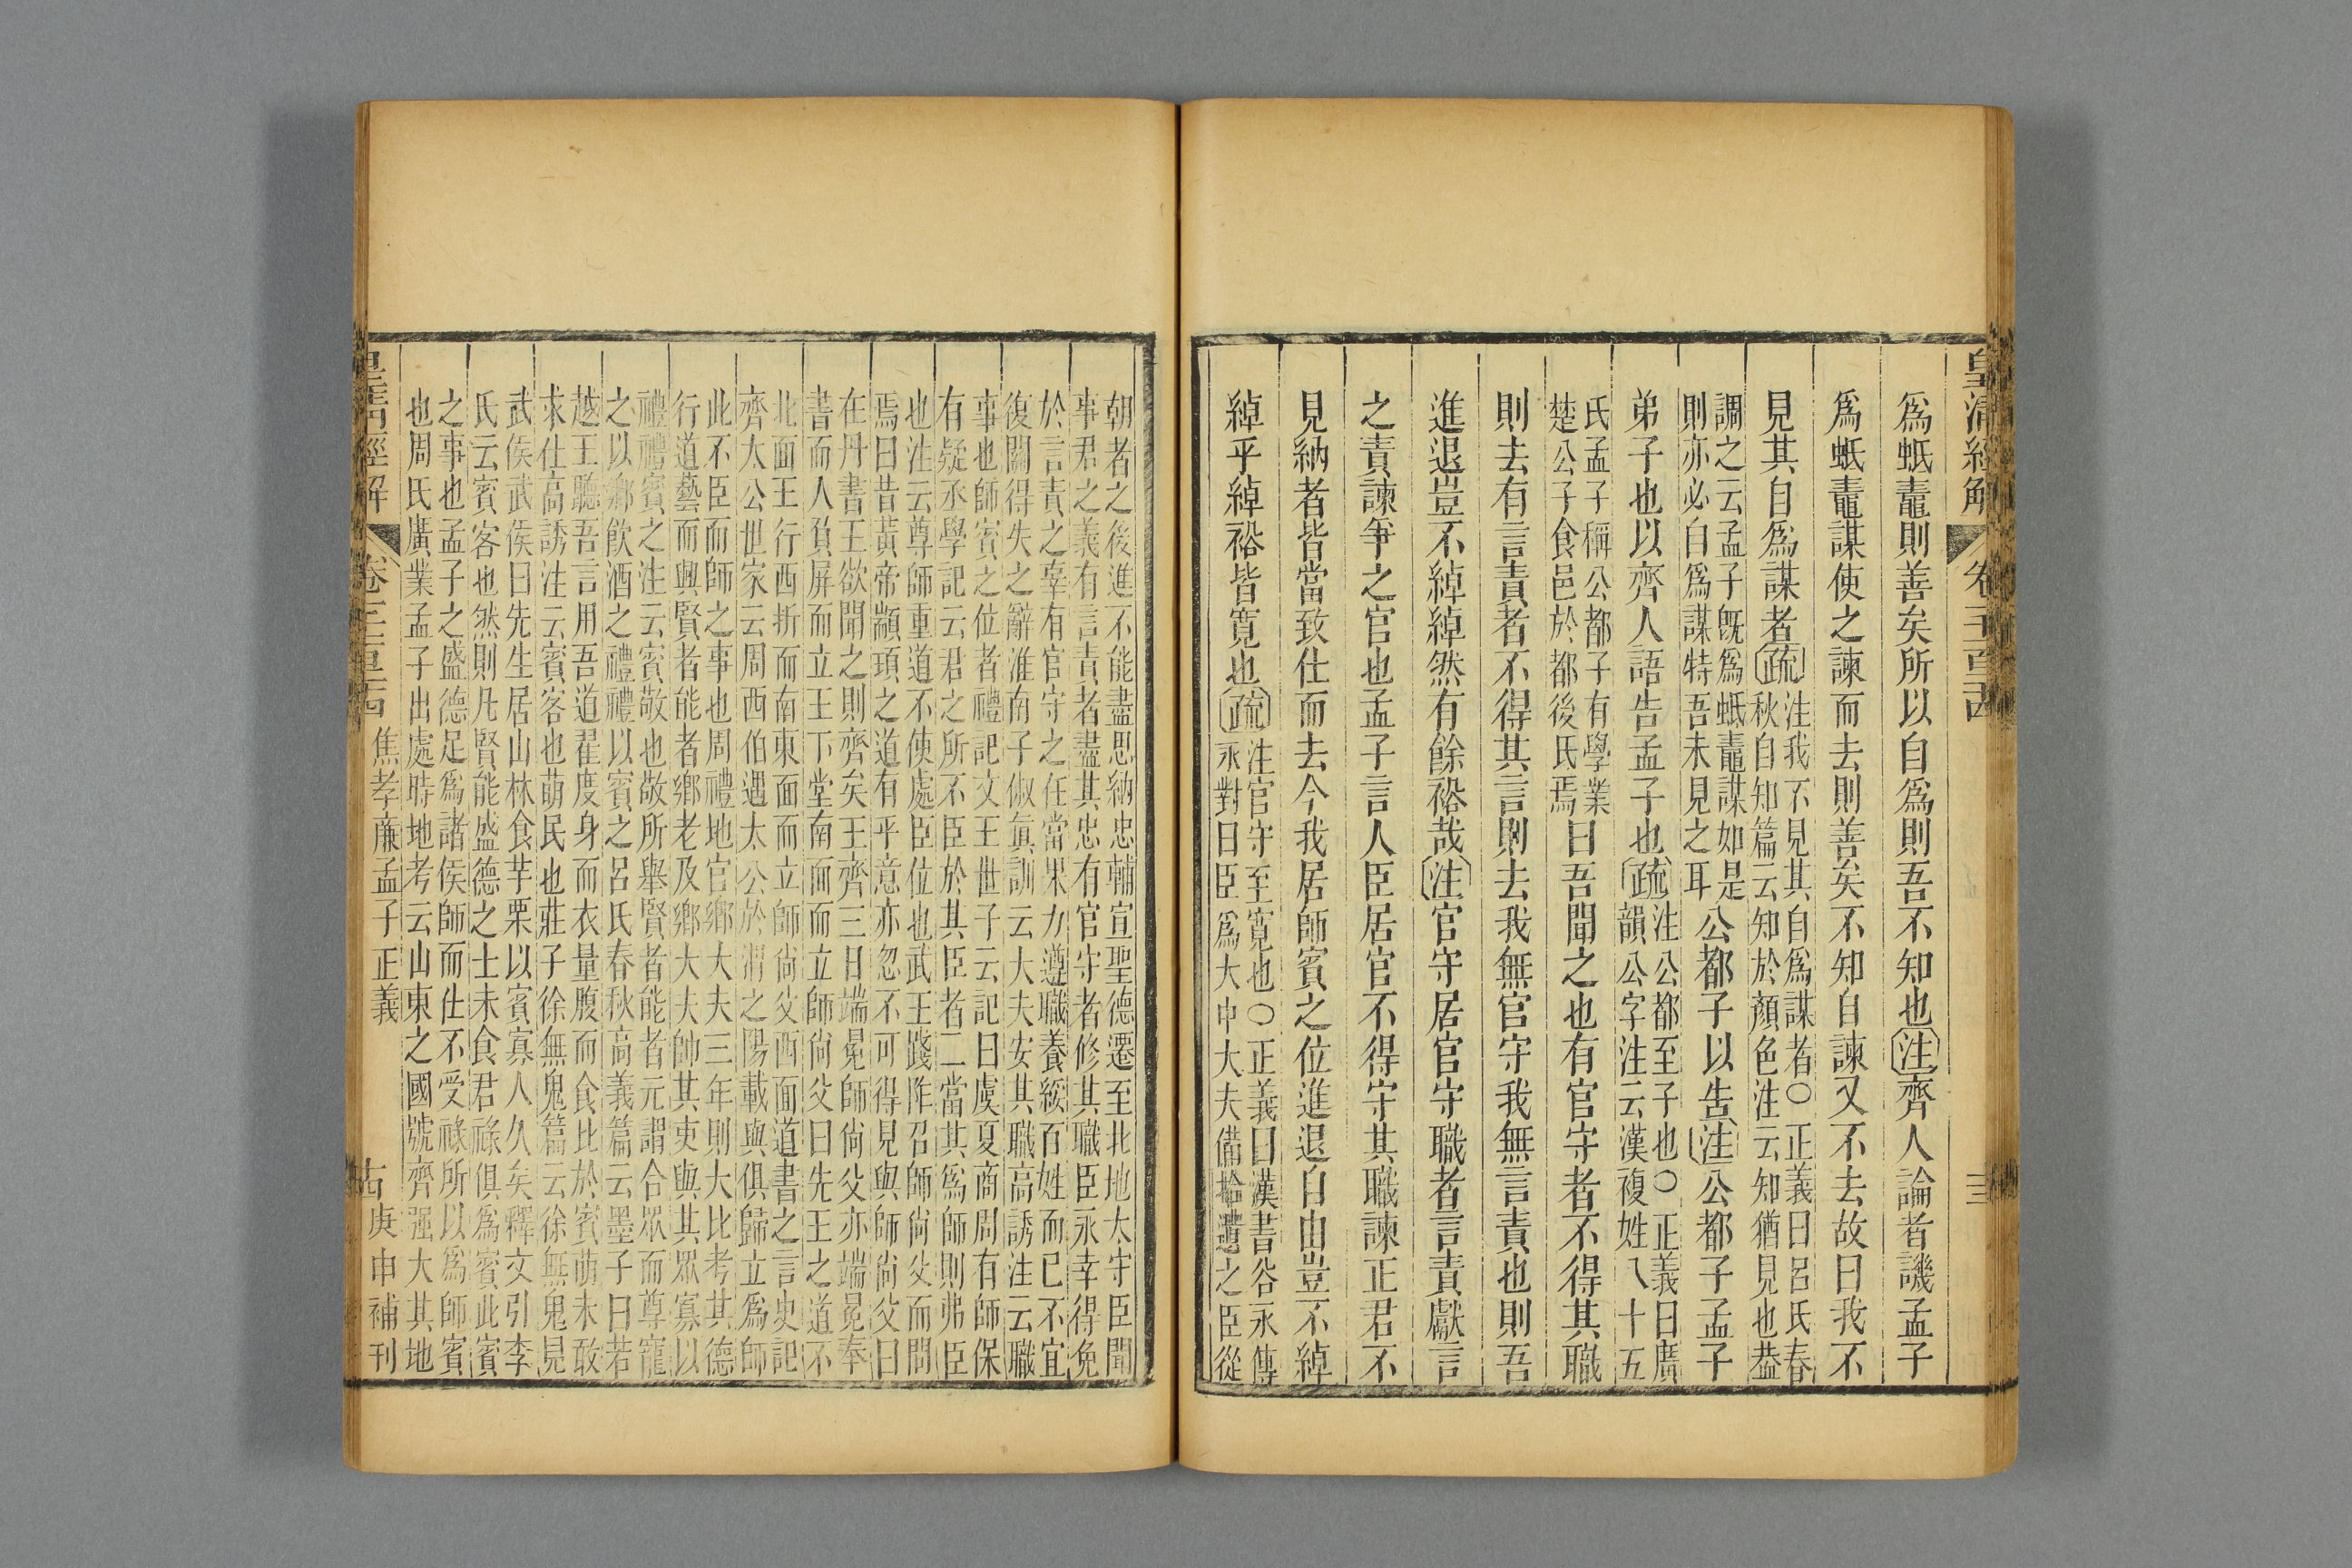 皇清經解
三
爲蚳鼃則善矣所以自爲則吾不知也注齊人論者譏孟子
爲蚳鼃謀使之諫而去則善矣不知自諫又不去故曰我不
見其自爲謀者疏注我不見其自爲謀者○正義曰呂氏春
秋自知篇云知於顏色注云知猶見也葢
調之云孟子旣爲蚳鼃謀如是
則亦必自爲謀特吾未見之耳公都子以告注公都子孟子
弟子也以齊人語告孟子也疏注公都至子也○正義曰廣
韻公字注云漢複姓八十五
氏孟子稱公都子有學業
楚公子食邑於都後氏焉曰吾聞之也有官守者不得其職
則去有言責者不得其言則去我無官守我無言責也則吾
進退豈不綽綽然有餘裕哉注官守居官守職者言責獻言
之責諫爭之官也孟子言人臣居官不得守其職諫正君不
見納者皆當致仕而去今我居師賓之位進退自由豈不綽
綽乎綽裕皆寬也疏注官守至寬也○正義曰漢書谷永傳
永對曰臣爲大中大夫備拾遺之臣從
朝者之後進不能盡思納忠輔宣聖德遷至北地太守臣聞
事君之義有言責者盡其忠有官守者修其職臣永幸得免
於言責之辜有官守之任當畢力遵職養綏百姓而已不宜
復關得失之辭淮南子俶眞訓云大夫安其職高誘注云職
事也師賓之位者禮記文王世子云記曰虞夏商周有師保
有疑丞學記云君之所不臣於其臣者二當其爲師則弗臣
也注云尊師重道不使處臣位也武王踐阼召師尙父而問
焉曰昔黃帝顓頊之道有乎意亦忽不可得見與師尙父曰
在丹書王欲聞之則齊矣王齊三日端冕師尙父亦端冕奉
書而入負屏而立王下堂南面而立師尙父曰先王之道不
北面王行西折而南東面而立師尙父西面道書之言史記
齊太公世家云周西伯遇太公於渭之陽載與俱歸立爲師
此不臣而師之事也周禮地官鄉大夫三年則大比考其德
行道藝而興賢者能者鄉老及鄉大夫帥其吏與其眾寡以
禮禮賓之注云賓敬也敬所舉賢者能者元謂合眾而尊寵
之以鄉飲酒之禮禮以賓之呂氏春秋高義篇云墨子曰若
越王聽吾言用吾道翟度身而衣量腹而食比於賓萌未敢
求仕高誘注云賓客也萌民也莊子徐無鬼篇云徐無鬼見
武侯武侯曰先生居山林食芋栗以賓寡人久矣釋文引李
氏云賓客也然則凡賢能盛德之士未食君祿俱爲賓此賓
之事也孟子之盛德足爲諸侯師而仕不受祿所以爲師賓
也周氏廣業孟子出處時地考云山東之國號齊强大其地
皇清經解
焦孝廉孟子正義
庚申補刊